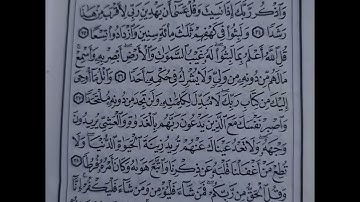 وَاذْكُر رَّبَّكَ إِذَا نَسِيتَ وَقُلْ عَسَىٰ أَن يَهْدِيَنِ رَبِّي لِأَقْرَبَ مِنْ هَٰذَا
رَشَدًا ﴿٢٤﴾ وَلَبِثُوا فِي كَهْفِهِمْ ثَلَٰثَ مِا۟ئَةٍ سِنِينَ وَازْدَادُوا تِسْعًا ﴿٢٥﴾
قُلِ اللَّهُ أَعْلَمُ بِمَا لَبِثُوا لَهُ غَيْبُ السَّمَٰوَٰتِ وَالْأَرْضِ أَبْصِرْ بِهِ وَأَسْمِعْ
مَا لَهُم مِّن دُونِهِ مِن وَلِيٍّ وَلَا يُشْرِكُ فِي حُكْمِهِ أَحَدًا ﴿٢٦﴾ وَاتْلُ مَا أُوحِيَ
إِلَيْكَ مِن كِتَابِ رَبِّكَ لَا مُبَدِّلَ لِكَلِمَٰتِهِ وَلَن تَجِدَ مِن دُونِهِ مُلْتَحَدًا ﴿٢٧﴾
وَاصْبِرْ نَفْسَكَ مَعَ الَّذِينَ يَدْعُونَ رَبَّهُم بِالْغَدَوٰةِ وَالْعَشِيِّ يُرِيدُونَ
وَجْهَهُ وَلَا تَعْدُ عَيْنَاكَ عَنْهُمْ تُرِيدُ زِينَةَ الْحَيَوٰةِ الدُّنْيَا وَلَا
تُطِعْ مَنْ أَغْفَلْنَا قَلْبَهُ عَن ذِكْرِنَا وَاتَّبَعَ هَوَىٰهُ وَكَانَ أَمْرُهُ فُرُطًا ﴿٢٨﴾
وَقُلِ الْحَقُّ مِن رَّبِّكُمْ فَمَن شَاءَ فَلْيُؤْمِن وَمَن شَاءَ فَلْيَكْفُرْ إِنَّا